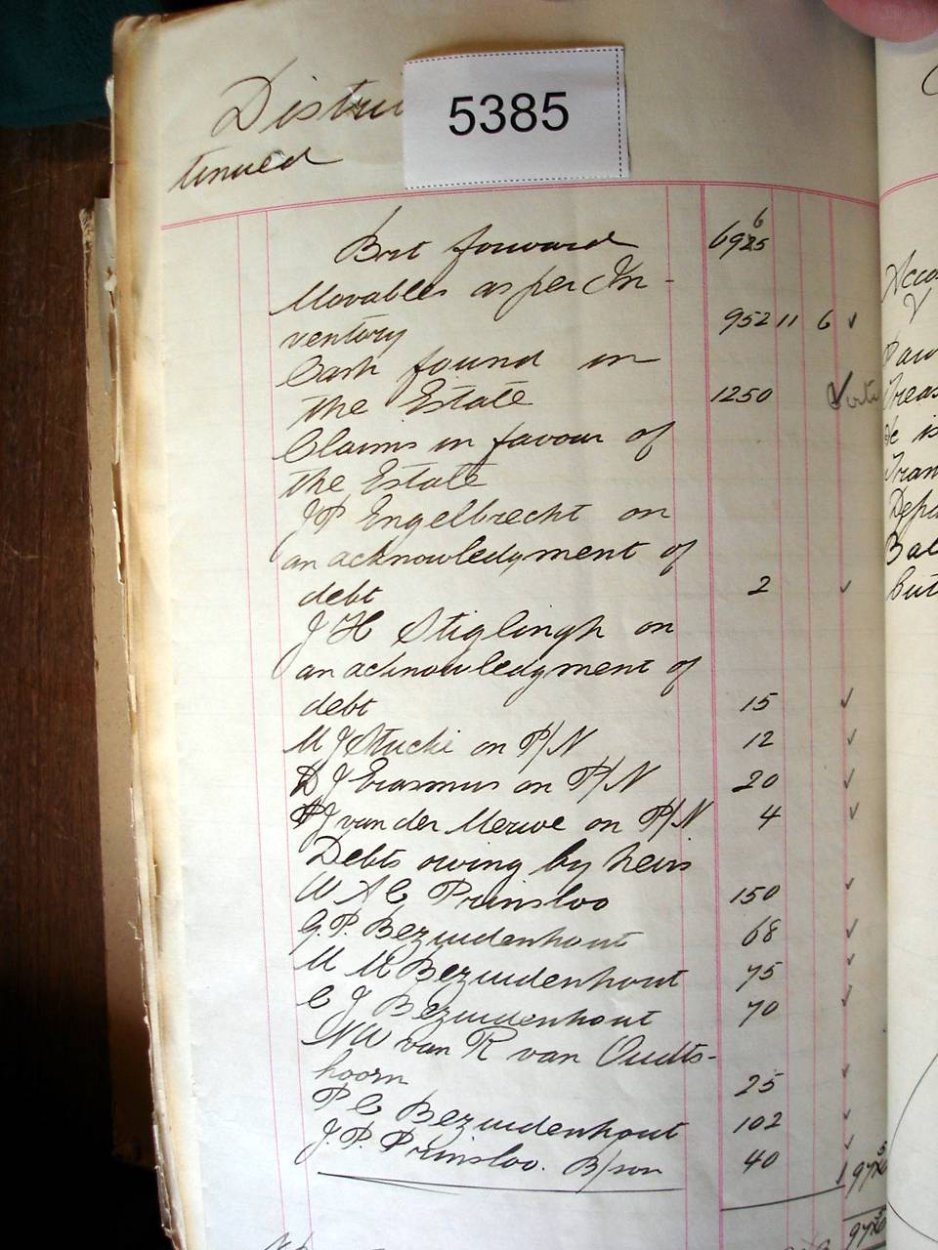 5385
tinued
Brt forward 6925 6
Movables as per In-
ventory 952 11 6 ✓
Cash found in
the Estate 1250 ✓
Claims in favour of
the Estate
J P Engelbrecht on
an acknowledgment of
debt 2 ✓
J H Stiglingh on
an acknowledgment of
debt 15 ✓
M J on P/N 12 ✓
D J Erasmus on P/N 20 ✓
P J van der Merwe on P/N 4 ✓
Debts owing by heirs
W A C Prinsloo 150 ✓
G. P. Bezuidenhout 68 ✓
M M Bezuidenhout 75 ✓
C J Bezuidenhout 70 ✓
van R van Oudts-
hoorn 25 ✓
P C Bezuidenhout 102 ✓
J. P. Prinsloo. B/son 40 ✓